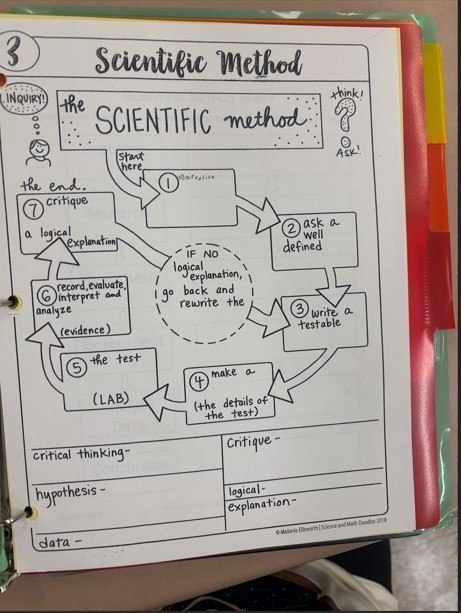 3
Scientific Method
INQUIRY!
the
SCIENTIFIC method
think!
?
ASK!
Start
here
1
observation
2 ask a
well
defined
3 write a
testable
4 make a
(the details of
the test)
5 the test
(LAB)
6 record, evaluate,
interpret and
analyze
(evidence)
the end.
7 critique
a logical
explanation
IF NO
logical
explanation,
go back and
rewrite the
critical thinking-
Critique -
hypothesis -
logical-
explanation-
data -
© Melanie Ellsworth | Science and Math Doodles 2018